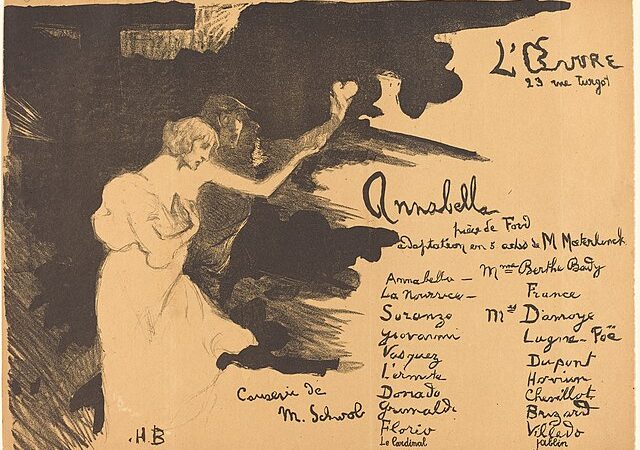 L'Œuvre
23 rue Turgot
Annabella
pièce de Ford
adaptation en 5 actes de M Mæterlinck
Annabella — Mme Berthe Bady
La Nourrice — France
Soranzo Mrs Damoye
Giovanni Lugné-Poë
Vasquez Dupont
L'ermite
Donado Chevillot
Grimaldi Brizard
Florio Villedo
Le Cardinal Jablin
Causerie de
M. Schwob
.H.B